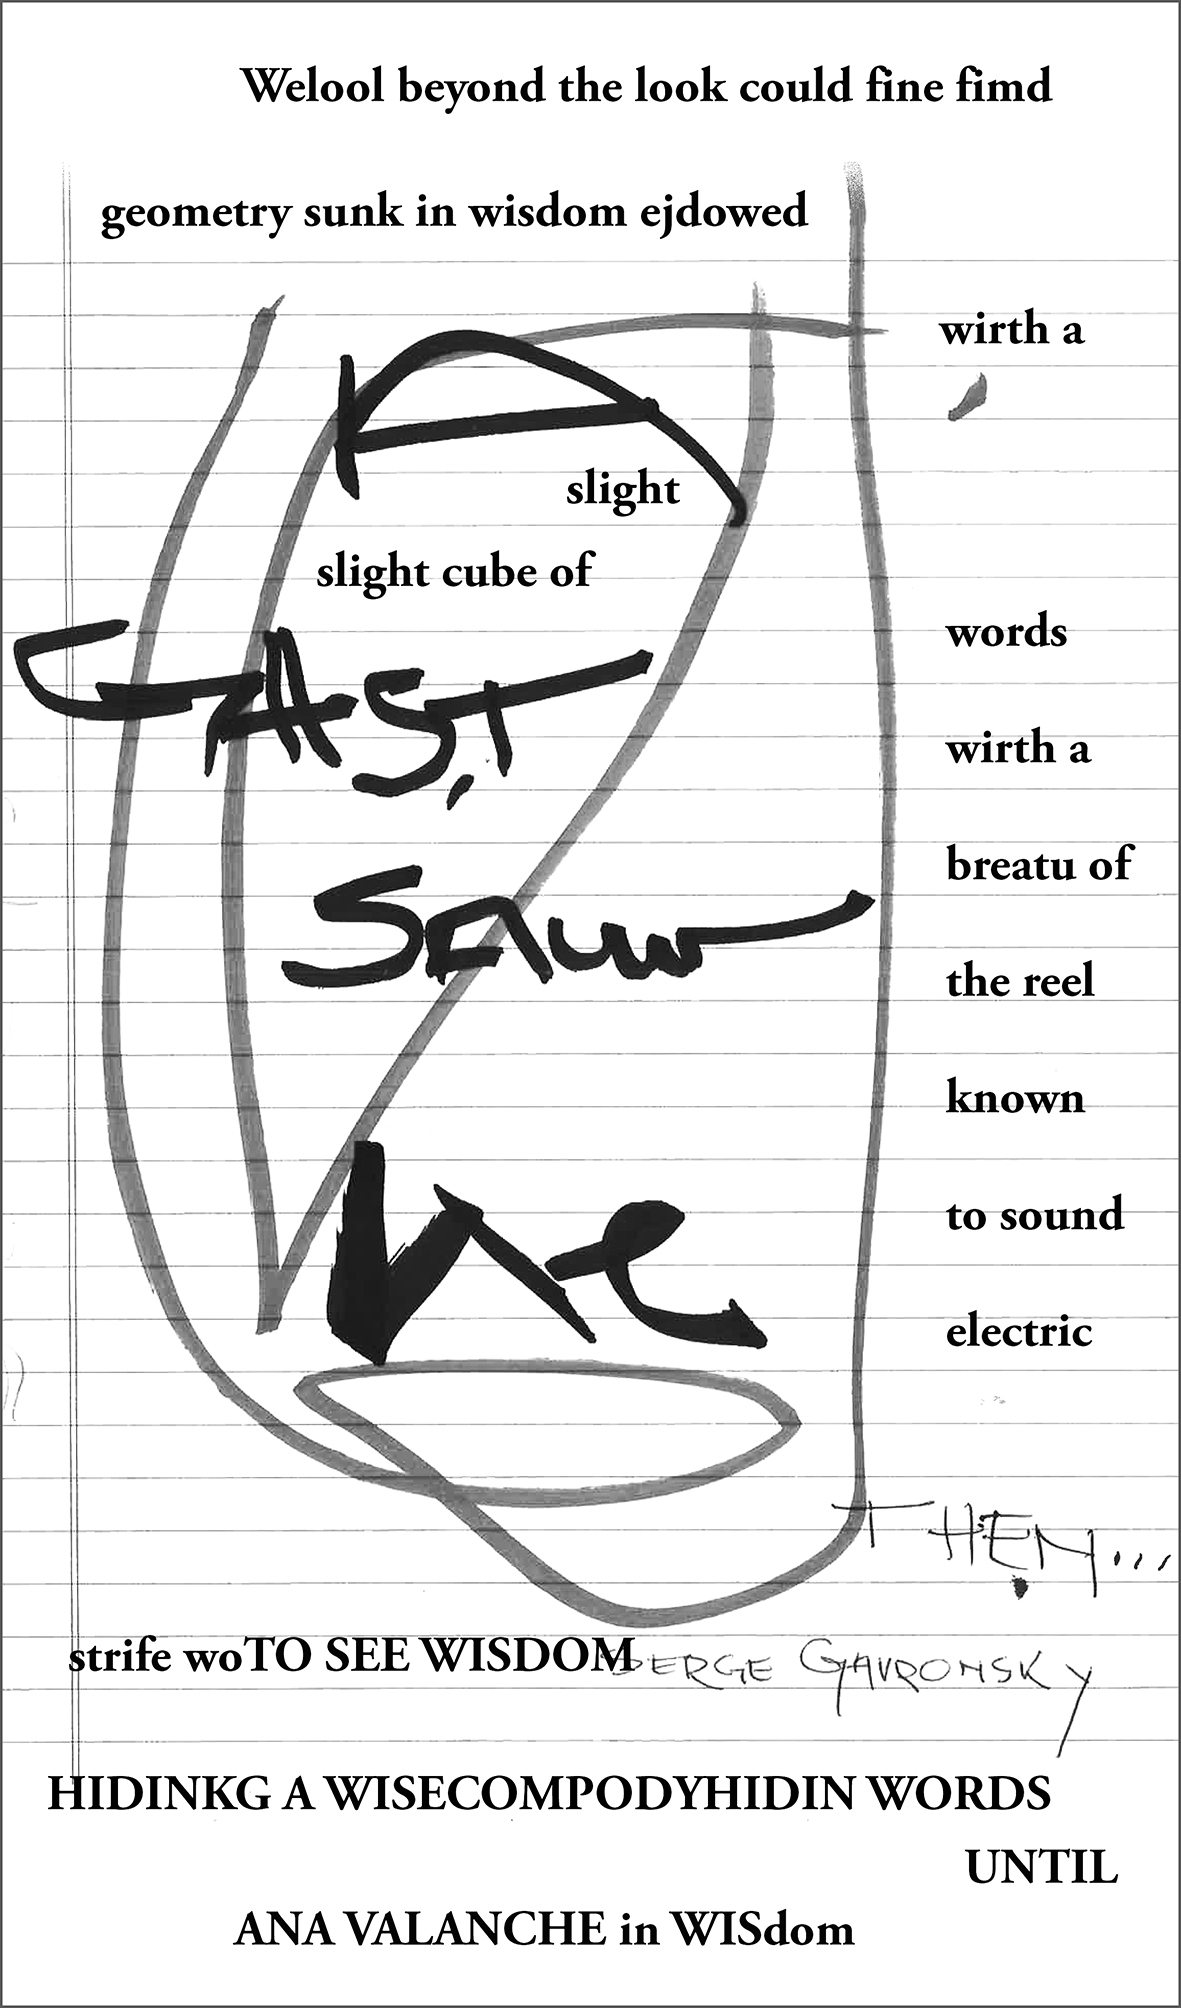 Welool beyond the look could fine fimd
geometry sunk in wisdom ejdowed
wirth a
slight
slight cube of
words
wirth a
breatu of
the reel
known
to sound
electric
THEN...
strife woTO SEE WISDOM
SERGE GAVRONSKY
HIDINKG A WISECOMPODYHIDIN WORDS
UNTIL
ANA VALANCHE in WISdom